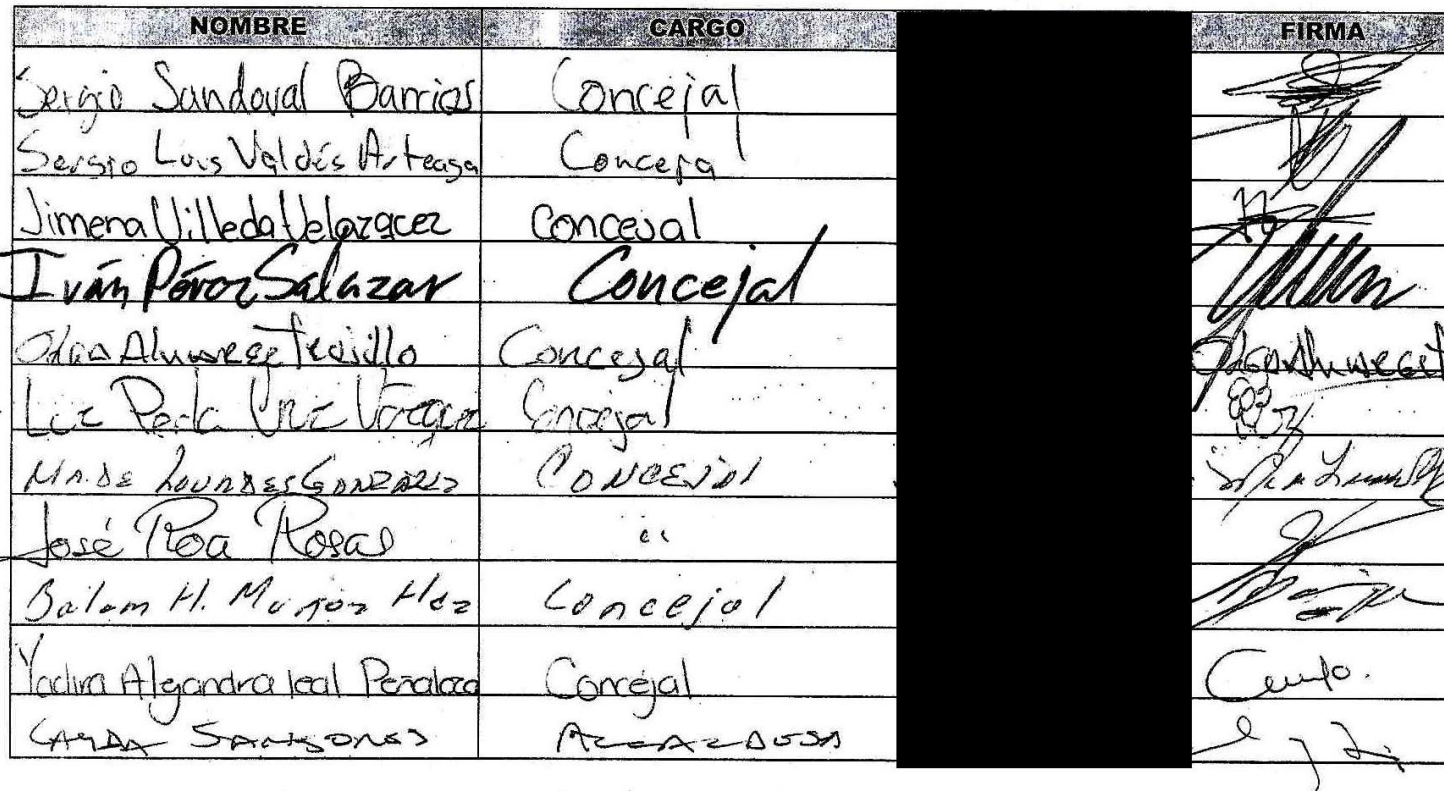 NOMBRE CARGO FIRMA
Sergio Sandoval Barrios Concejal
Sergio Luis Valdés Arteaga Conceja
Jimena Villeda Velazqcez Concejal
Iván Pérez Salazar Concejal
Trujillo Concejal
Luz Perla Cruz Vazquez Concejal
Ma. de Lourdes González Concejal
José Roa Rosas "
Balam H. Muñoz Hdz Concejal
Yadira Alejandra leal Peñaloza Concejal
Layda Sansores Alcaldesa